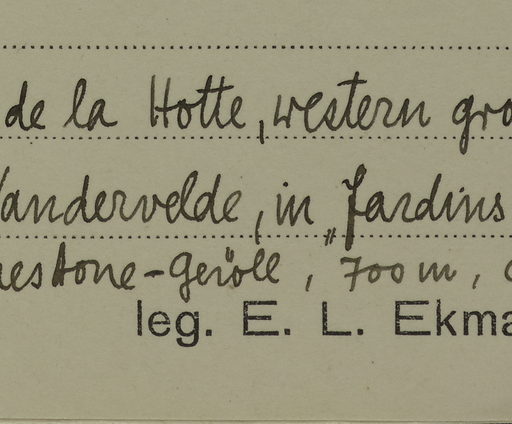 de la Hotte, western gro
Vandervelde, in „Jardins
nestone-Geröll, 700 m,
leg. E. L. Ekma